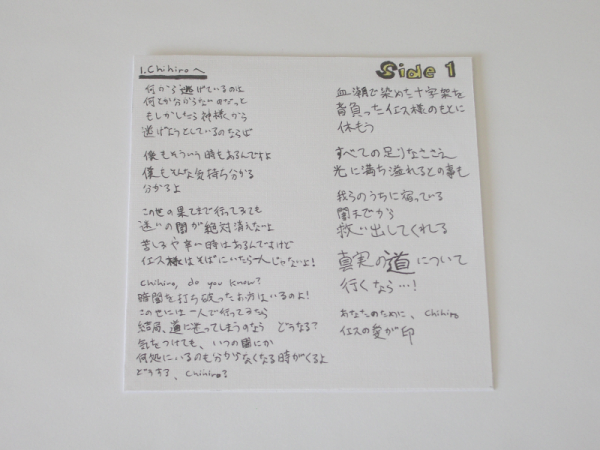 1. Chihiroへ
Side 1
何から逃げているのは
何てか分からないのだって
もしかしたら神様から
逃げようとしているのならば
僕もそういう時もあるんですよ
僕もそんな気持ち分かる
分かるよ
この世の果てまで行ってても
迷いの闇が絶対消えないよ
苦しみや辛い時はあるんですけど
イエス様はそばにいたら一人じゃないよ!
Chihiro, do you know?
暗闇を打ち破ったお方はいるのよ!
この世には一人で行ってるなら
結局、道に迷ってしまうのなら どうなる?
気をつけても、いつの間にか
何処にいるのも分からなくなる時がくるよ
どうする、Chihiro?
血潮で染めた十字架を
背負ったイエス様のもとに
休もう
すべての足りなささえ
光に満ち溢れるとの事も
我らのうちに宿っている
闇まてから
救い出してくれる
真実の道について
行くなら…!
あなたのために、Chihiro
イエスの愛が印